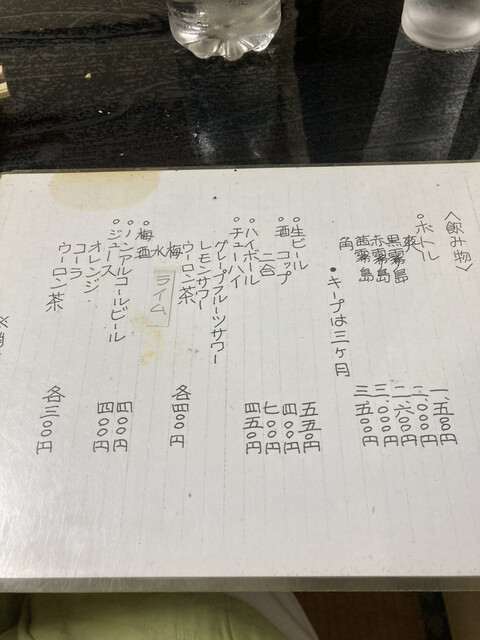 〈飲み物〉
○ボトル
爽 一、五〇〇円
黒霧島 二、〇〇〇円
赤霧島 二、六〇〇円
茜霧島 三、〇〇〇円
角 三、五〇〇円
●キープは三ヶ月
○生ビール 五五〇円
○酒 コップ 四〇〇円
二合 七〇〇円
○ハイボール 四五〇円
○チューハイ
グレープフルーツサワー
レモンサワー
ウーロン茶 各四〇〇円
梅
水
ライム
○梅酒 四〇〇円
○ノンアルコールビール 四〇〇円
○ジュース
オレンジ
コーラ
ウーロン茶 各三〇〇円